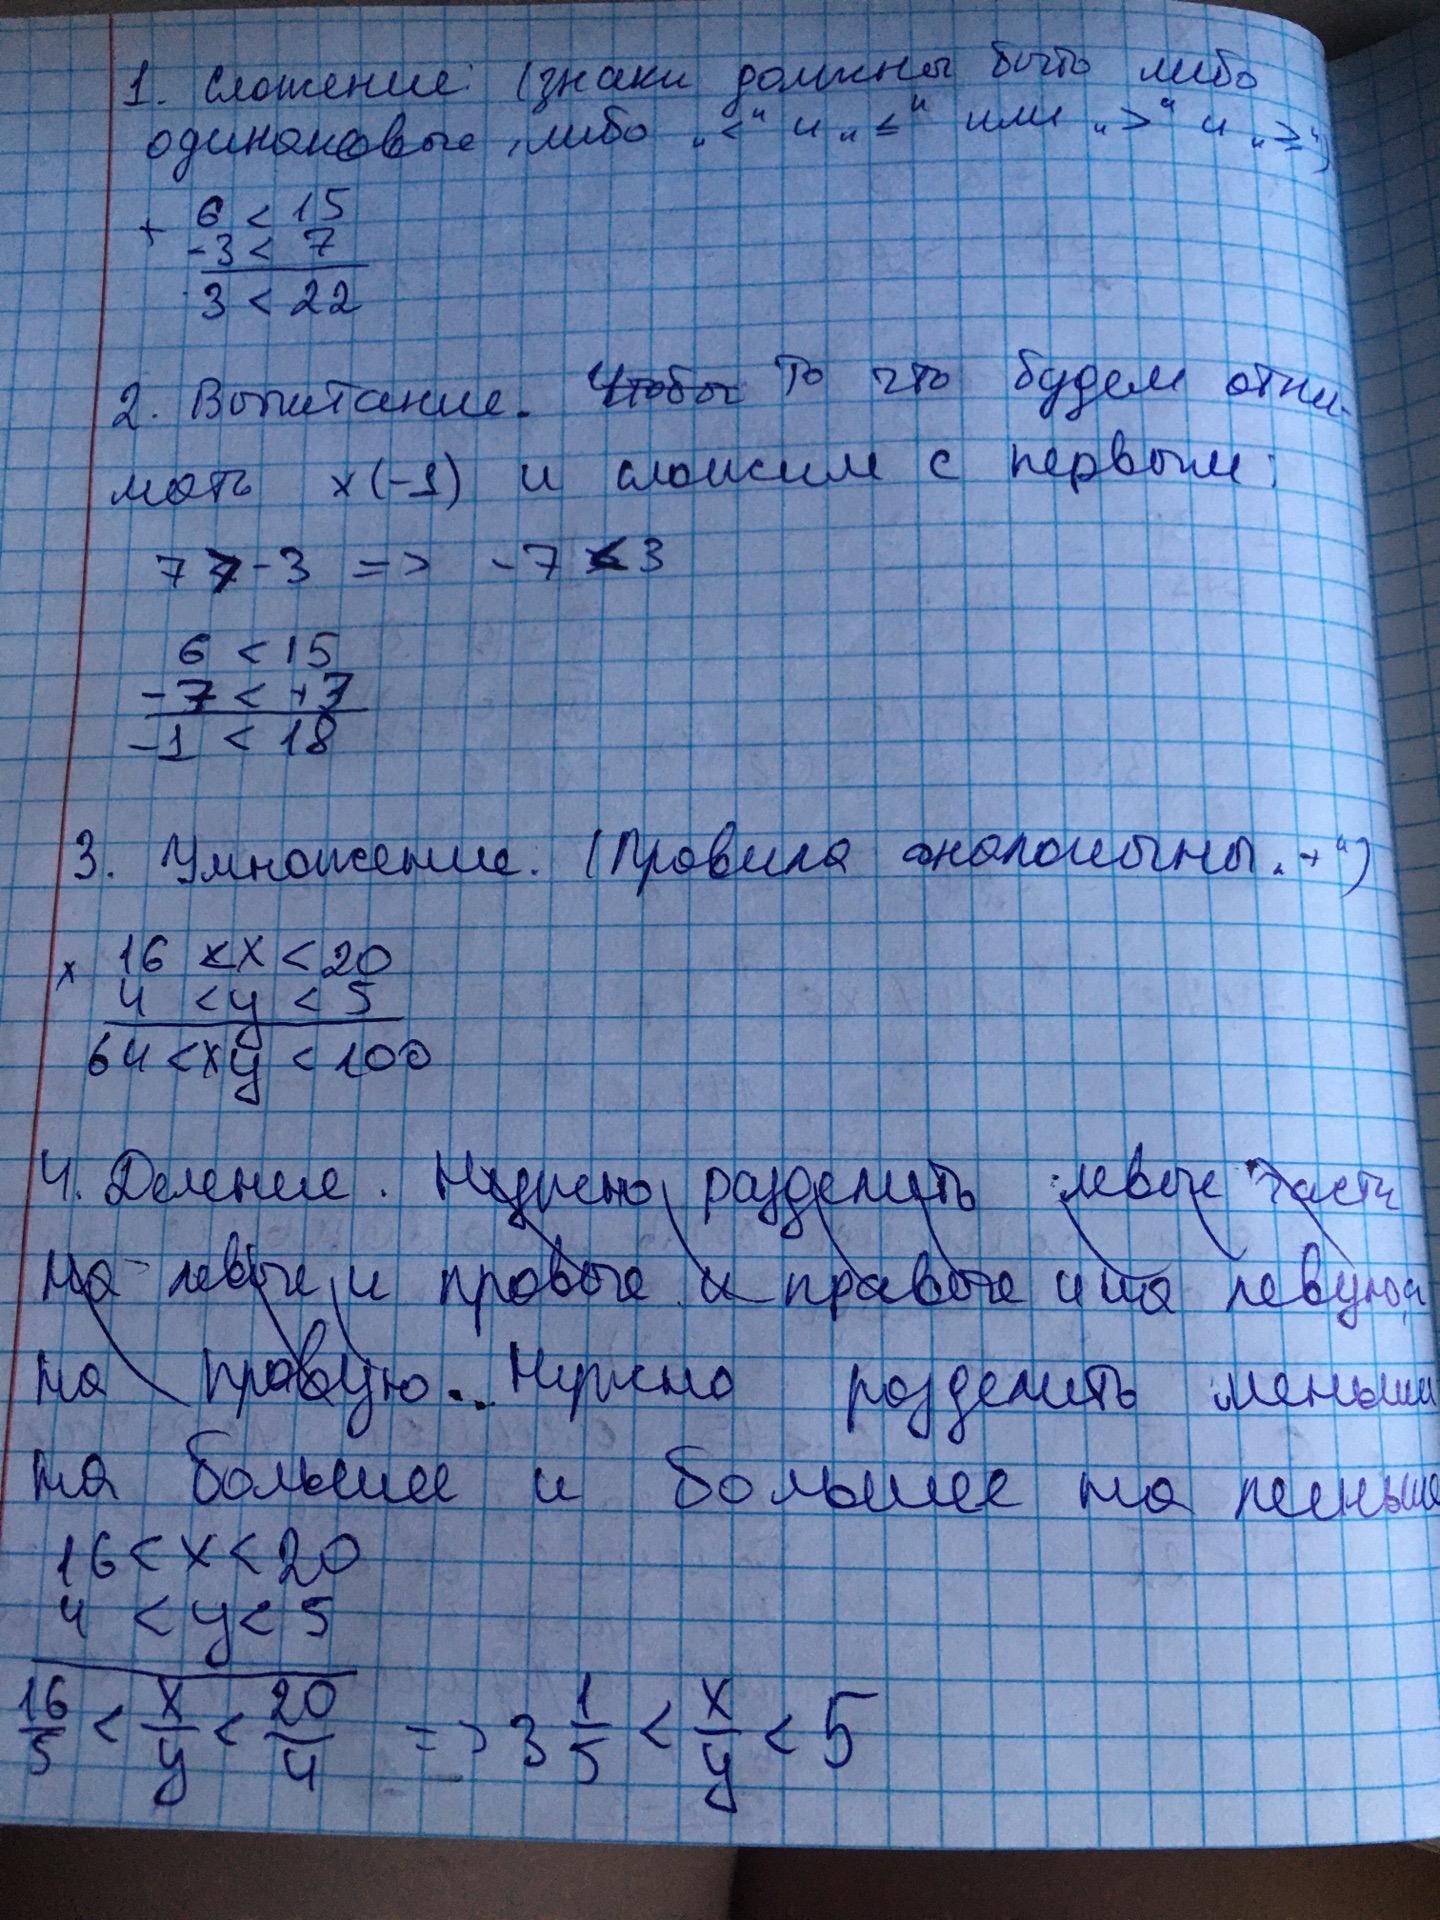 1. Сложение: (знаки должны быть либо
одинаковые, либо „<“ и „≤“ или „>“ и „≥“)
+ 6 < 15
-3 < 7
3 < 22
2. Вычитание. Чтобы То что будем отни-
мать x(-1) и сложим с первым:
7 > -3 => -7 < 3
6 < 15
-7 < +3
-1 < 18
3. Умножение. (Правила аналогичны „+“)
x 16 < x < 20
4 < y < 5
64 < xy < 100
4. Деление. Нужно разделить левые части
на левые и правые и правые и на левую,а
на правую. Нужно разделить меньшее
на большее и большее на меньшее
16 < x < 20
4 < y < 5
16/5 < x/y < 20/4 => 3 1/5 < x/y < 5